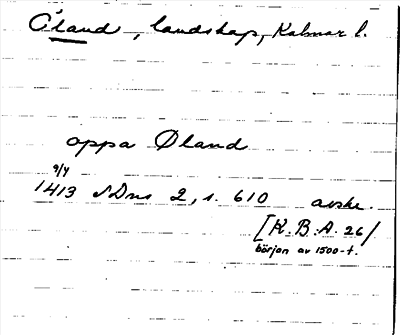 Öland, landskap, Kalmar l.
oppa Øland
9/4
1413 SDns 2, s. 610 avskr.
[K. B. A. 26/
början av 1500-t.